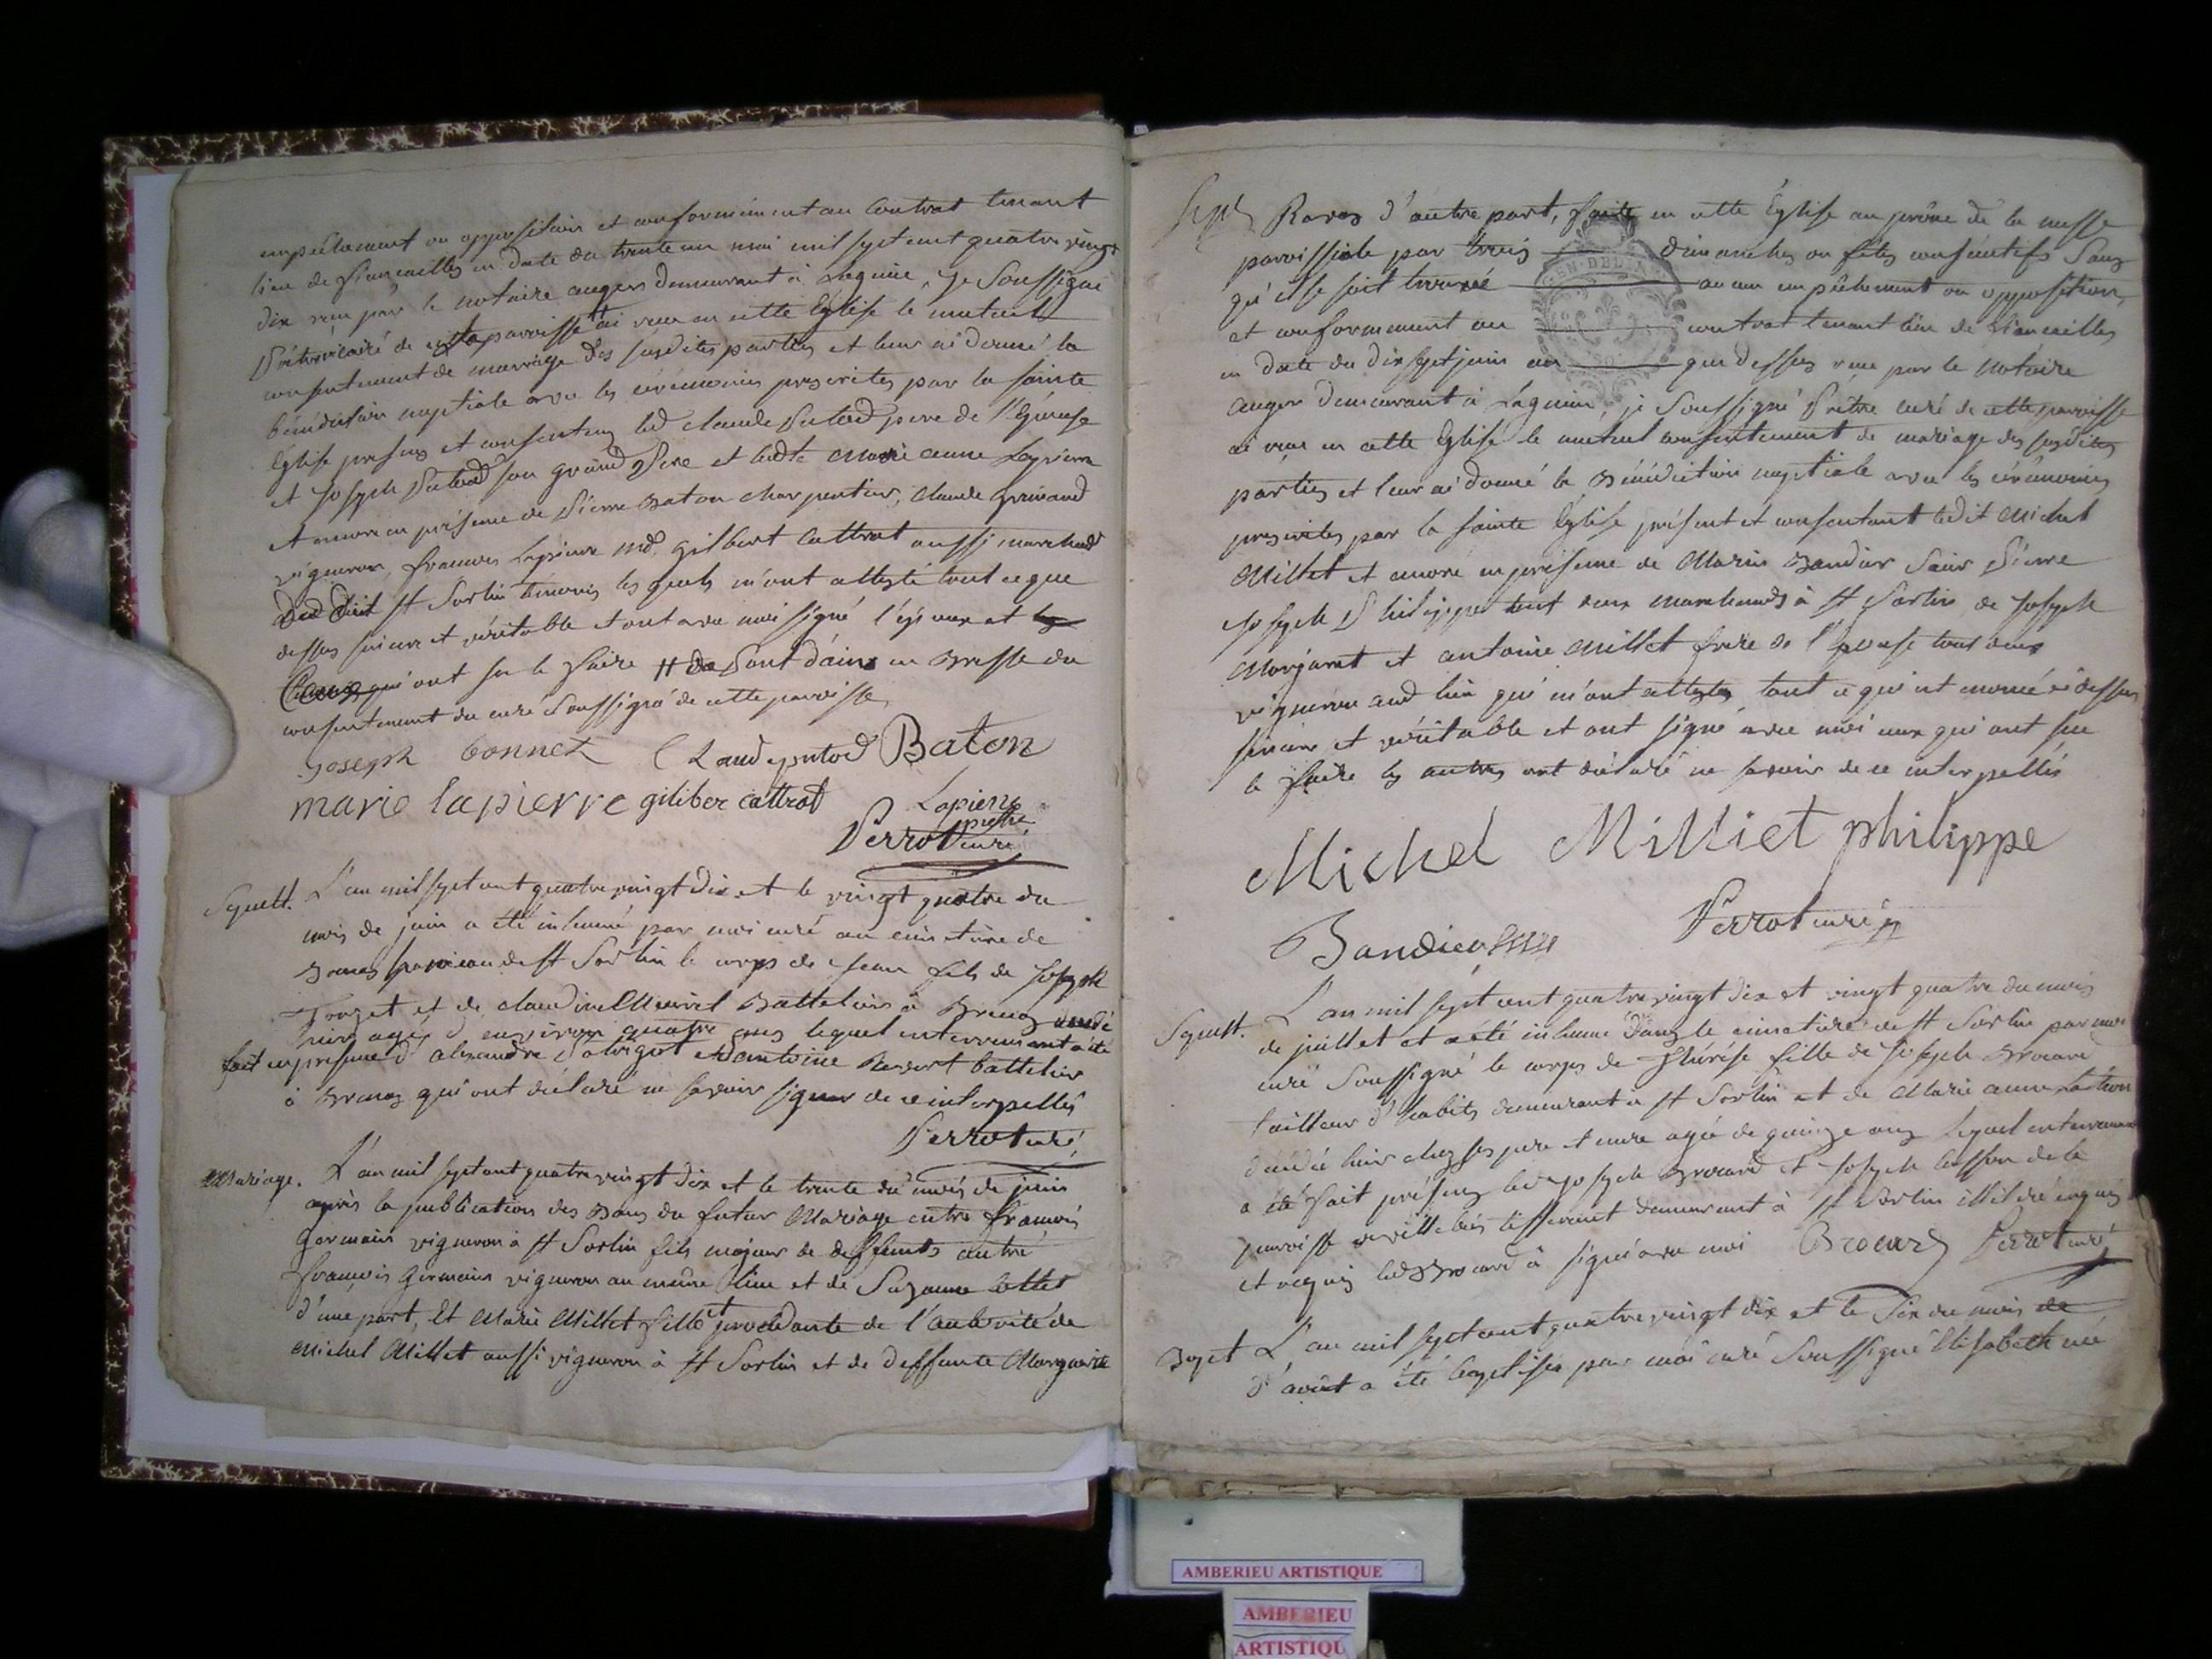 empêchement ou opposition et conformément au Contrat tenant
lieu de fiançailles en date du trente un mai mil sept cent quatre vingt
dix reçu par le notaire auger demeurant à Lagnieu, je soussigné
Prêtre vicaire de cette paroisse ai reçu en cette Eglise le mutuel
consentement de mariage des susdites parties et leur ai donné la
bénédiction nuptiale avec les cérémonies prescrites par la sainte
Eglise présens et consentans led claude pere de l'Epouse
et joseph son grand Pere et ladte Marie anne Lapierre
et encore en présence de Pierre Baton charpentier, claude
vigneron, francois Lapierre md, gilbert Cattrat aussi marchand
dud St Sorlin témoins les quels m'ont attesté tout ce que
dessus sincere et véritable et ont avec moi signé l'époux et les
qui ont su le faire de Pont d'ain en Bresse du
consentement du curé soussigné de cette paroisse
joseph bonnet Claud putod Baton
marie lapierre giliber cattrat Lapierre
Perrot curé
Sepult. L'an mil sept cent quatre vingt dix et le vingt quatre du
mois de juin a été inhumé par moi curé au cimetière de
de St Sorlin le corps de jean fils de joseph
et de claudine Battelier à
hier agé d'environ quatre ans lequel enterrement a été
fait en présence d'alexandre et d'antoine battelier
à qui ont déclaré ne savoir signer de ce interpellés
Perrot curé
Mariage. L'an mil sept cent quatre vingt dix et le trente du mois de juin
après la publication des Bans du futur Mariage entre francois
Germain vigneron à St Sorlin fils majeur de deffunts autre
francois Germain vigneron au même lieu et de Suzanne
d'une part, Et Marie Milliet fille procédante de l'autorité de
Michel Milliet aussi vigneron à St Sorlin et de deffunte Marguerite
sept Ravos d'autre part, faite en cette Eglise au prône de la messe
paroissiale par trois dimanches ou fêtes consécutifs sans
qu'il se soit trouvé aucun empêchement ou opposition,
et conformement au contrat tenant lieu de fiancailles
en date du dix sept juin an que dessus reçu par le notaire
auger demeurant à Lagnieu, je soussigné Prêtre curé de cette paroisse
ai reçu en cette Eglise le mutuel consentement de mariage des susdites
parties et leur ai donné la Bénédiction nuptiale avec les cérémonies
prescrites par la sainte Eglise présent et consentant ledit Michel
Milliet et encore en présence de Marin Bandier Pierre
joseph Philippe tout deux marchands à St Sorlin, de joseph
Morgaret et antoine Milliet frere de l'épouse tout deux
vigneron aud lieu qui m'ont attestés tout ce qui est énoncé ci dessus
sincere et véritable et ont signé avec moi ceux qui ont su
le faire les autres ont déclaré ne savoir de ce interpellés
Michel Milliet philippe
Bandier Perrot curé
Sepult. L'an mil sept cent quatre vingt dix et vingt quatre du mois
de juillet et a été inhumé dans le cimetière de St Sorlin par moi
curé soussigné le corps de Thérèse fille de joseph Brocard
tailleur d'habits demeurant à St Sorlin et de Marie anne
décédée hier chez ses pere et mere agée de quinze ans Lequel enterrement
a été fait présens led joseph Brocard et joseph de la
paroisse de villebois tisserant demeurant à St Sorlin illitéré enquis
et requis led Brocard à signé avec moi Brocard Perrot curé
Bapt L'an mil sept cent quatre vingt dix et le six du mois de
d'août a été baptisée par moi curé soussigné Elisabeth née
GEN. DE L'AIN
AMBERIEU ARTISTIQUE
AMBERIEU
ARTISTIQU